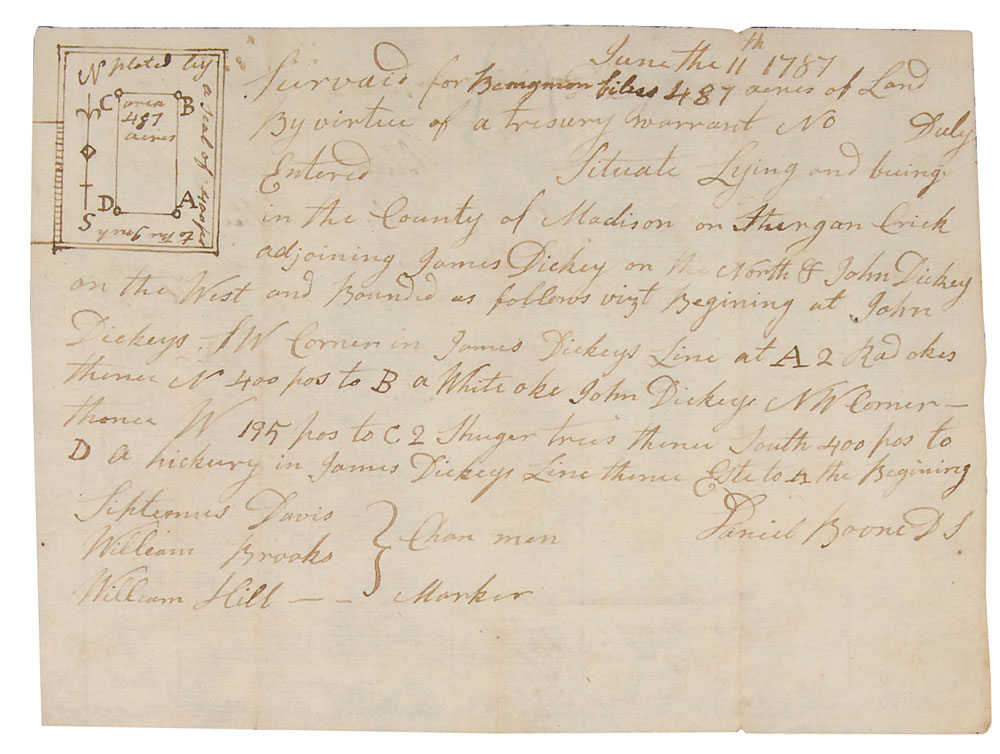 N plated by
a Scal of 400 pos
to the Inch
C
B
area
487
acres
D
A
S
June the 11th 1787
Survaid for Bengmon 487 acres of Land
By virtue of a tresury warrant No Duly
Entered Situate Lying and being
in the County of Madison on Sturgan Crick
adjoining James Dickey on the North & John Dickey
on the West and Bounded as follows vizt Begining at John
Dickeys SW Corner in James Dickeys Line at A 2 Rad okes
thence N 400 pos to B a White oke John Dickeys NW Corner —
thence W 195 pos to C 2 Shuger trees thence South 400 pos to
D a hickury in James Dickeys Line thence Este to A the Begining
Septemus Davis
William Brooks } Chan men Daniel Boone D S
William Hill — — Marker